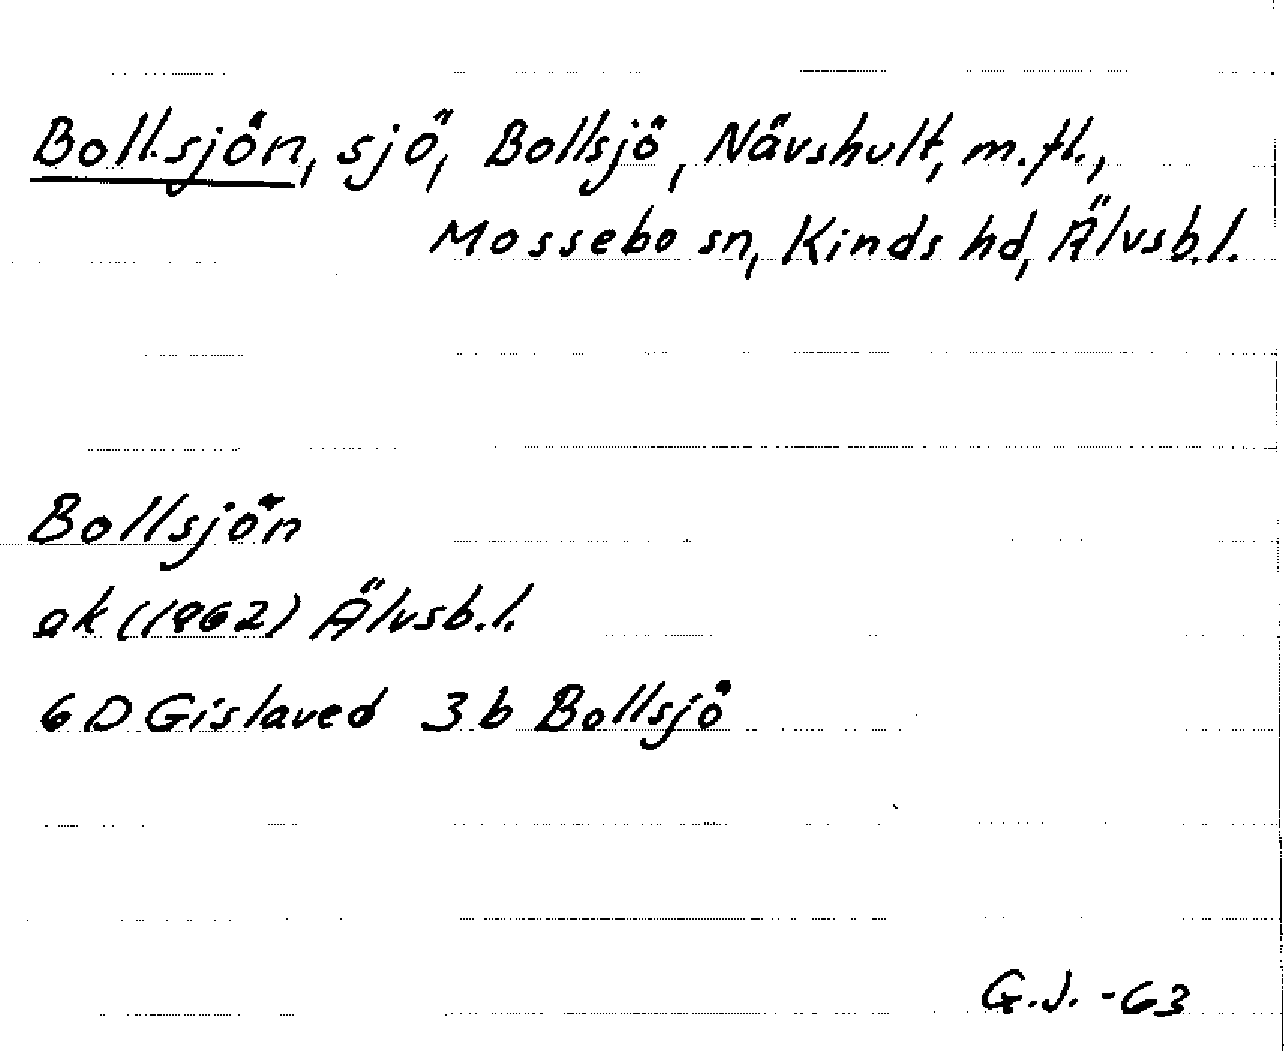 Bollsjön, sjö, Bollsjö, Nävshult, m.fl.,
Mossebo sn, Kinds hd, Älvsb.l.
Bollsjön
ek (1962) Älvsb.l.
6D Gislaved 3b Bollsjö
G.J. -63